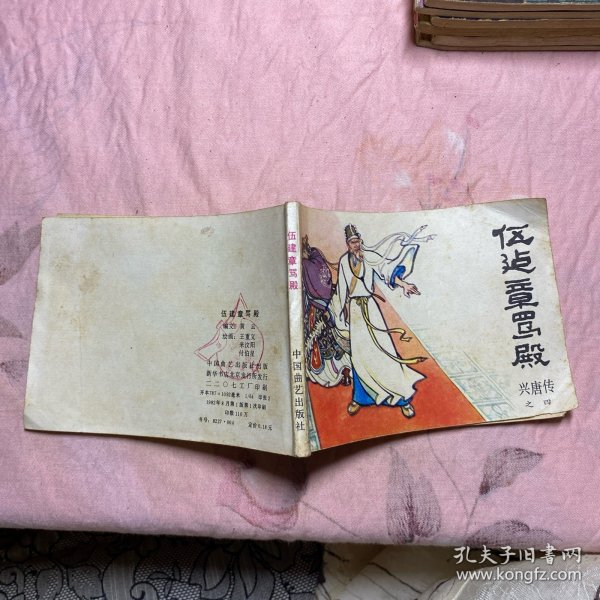 伍建章骂殿
兴唐传
之四
伍建章骂殿
中国曲艺出版社
伍建章骂殿
编文：黄云
绘画：王重义
米汝阳
付伯星
中国曲艺出版社出版
新华书店北京发行所发行
二二〇七工厂印刷
开本787×1092毫米 1/64 印张2
印数110万
书号：8227·004 定价0.18元
孔夫子旧书网
www.kongfz.com